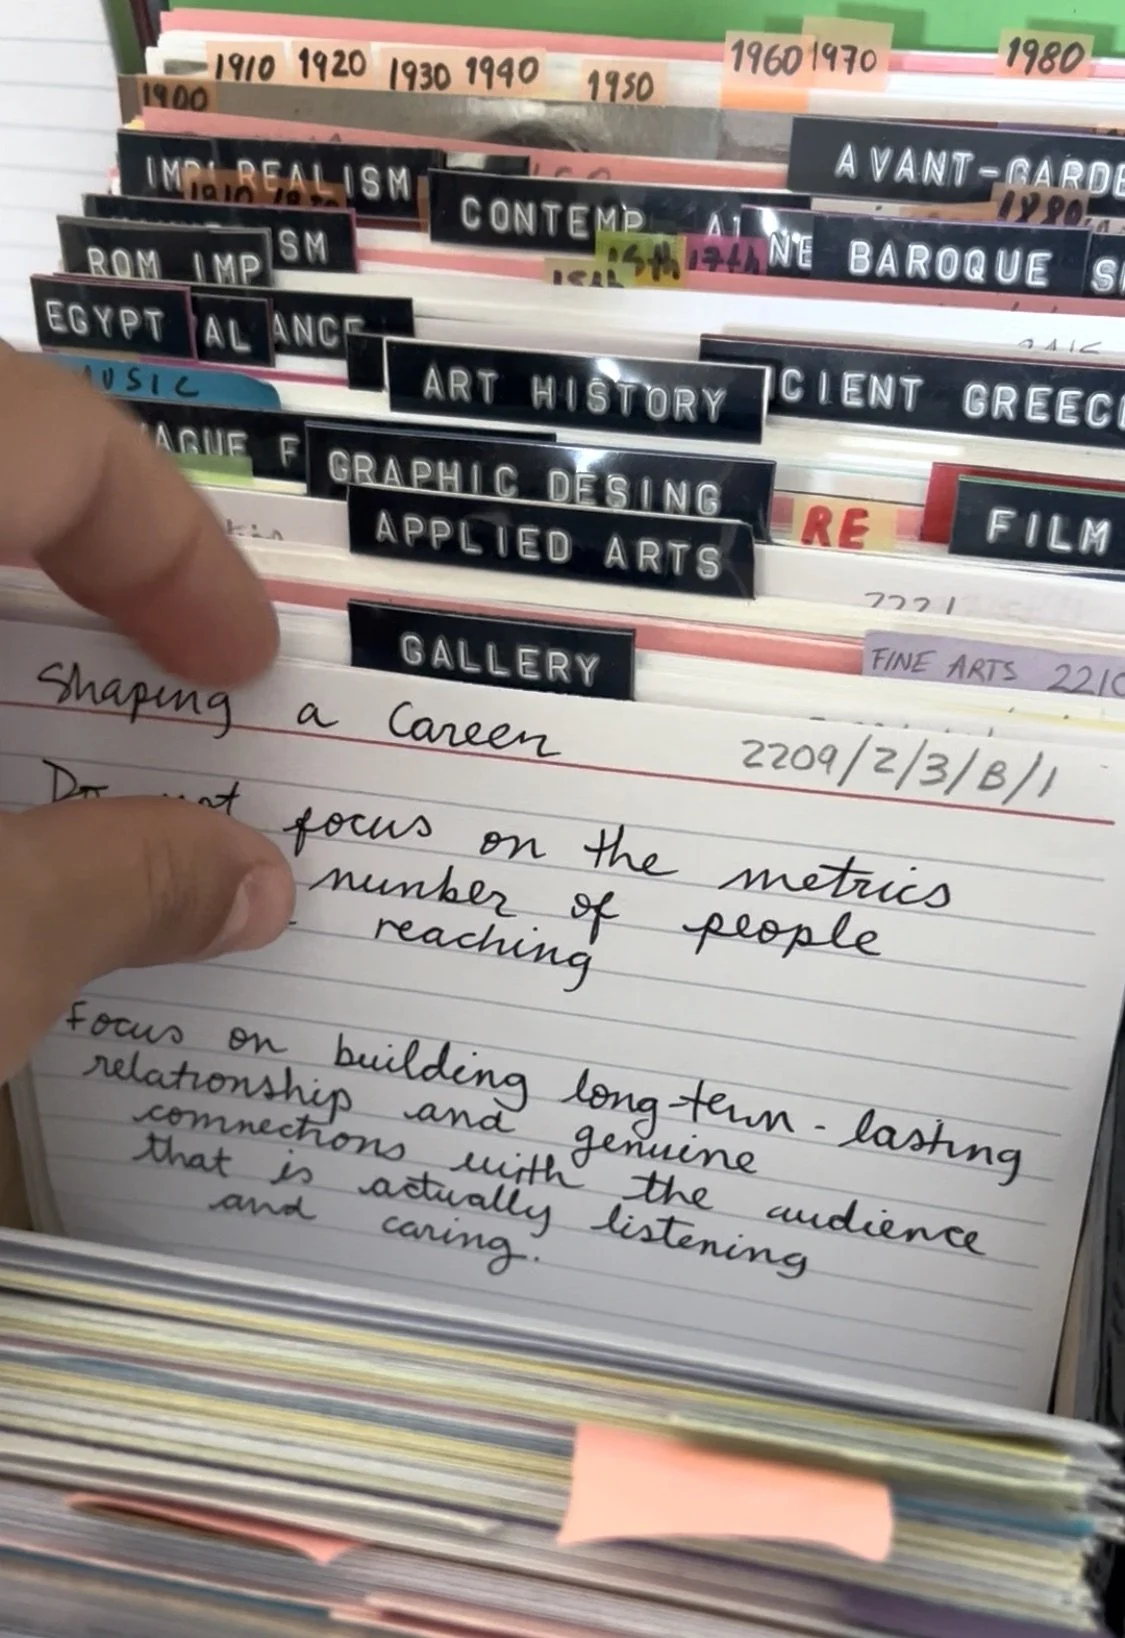 1910 1920 1930 1940 1950 1960 1970 1980
1900
AVANT-GARDE
REALISM
CONTEMP
1880
SM
15th 17th
NE
BAROQUE
ROM IMP
EGYPT
AL
ANCE
ART HISTORY
CIENT GREECE
USIC
AGUE F
GRAPHIC DESING
APPLIED ARTS
RE
FILM
GALLERY
FINE ARTS
Shaping a Career
2209/2/3/B/1
Do not focus on the metrics
number of people
reaching
Focus on building long-term-lasting
relationship and genuine
connections with the audience
that is actually listening
and caring.